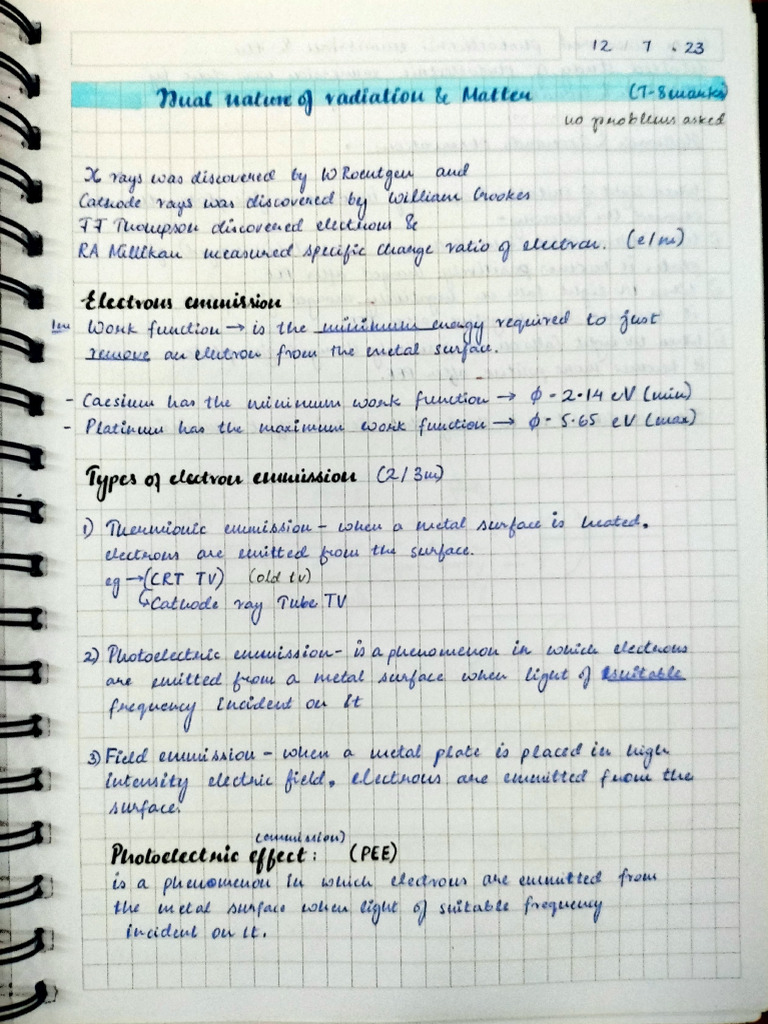 12 7 . 23
Dual nature of radiation & Matter (T-8marks)
no problems asked
X rays was discovered by W Roentgen and
Cathode rays was discovered by William Crookes
JJ Thompson discovered electrons &
RA Millikan measured specific charge ratio of electron. (e/m)
Electrons emmission
1m Work function → is the minimum energy required to just
remove an electron from the metal surface.
- Caesium has the minimum work function → ϕ - 2.14 eV (min)
- Platinum has the maximum work function → ϕ - 5.65 eV (max)
Types of electron emmission (2/3m)
1) Thermionic emmission - when a metal surface is heated.
electrons are emitted from the surface.
eg → (CRT TV) (old tv)
↳ Cathode ray Tube TV
2) Photoelectric emmission - is a phenomenon in which electrons
are emitted from a metal surface when light of suitable
frequency incident on it
3) Field emmission - when a metal plate is placed in high
intensity electric field. electrons are emmitted from the
surface.
(emmission)
Photoelectric effect: (PEE)
is a phenomenon in which electrons are emmitted from
the metal surface when light of suitable frequency
incident on it.